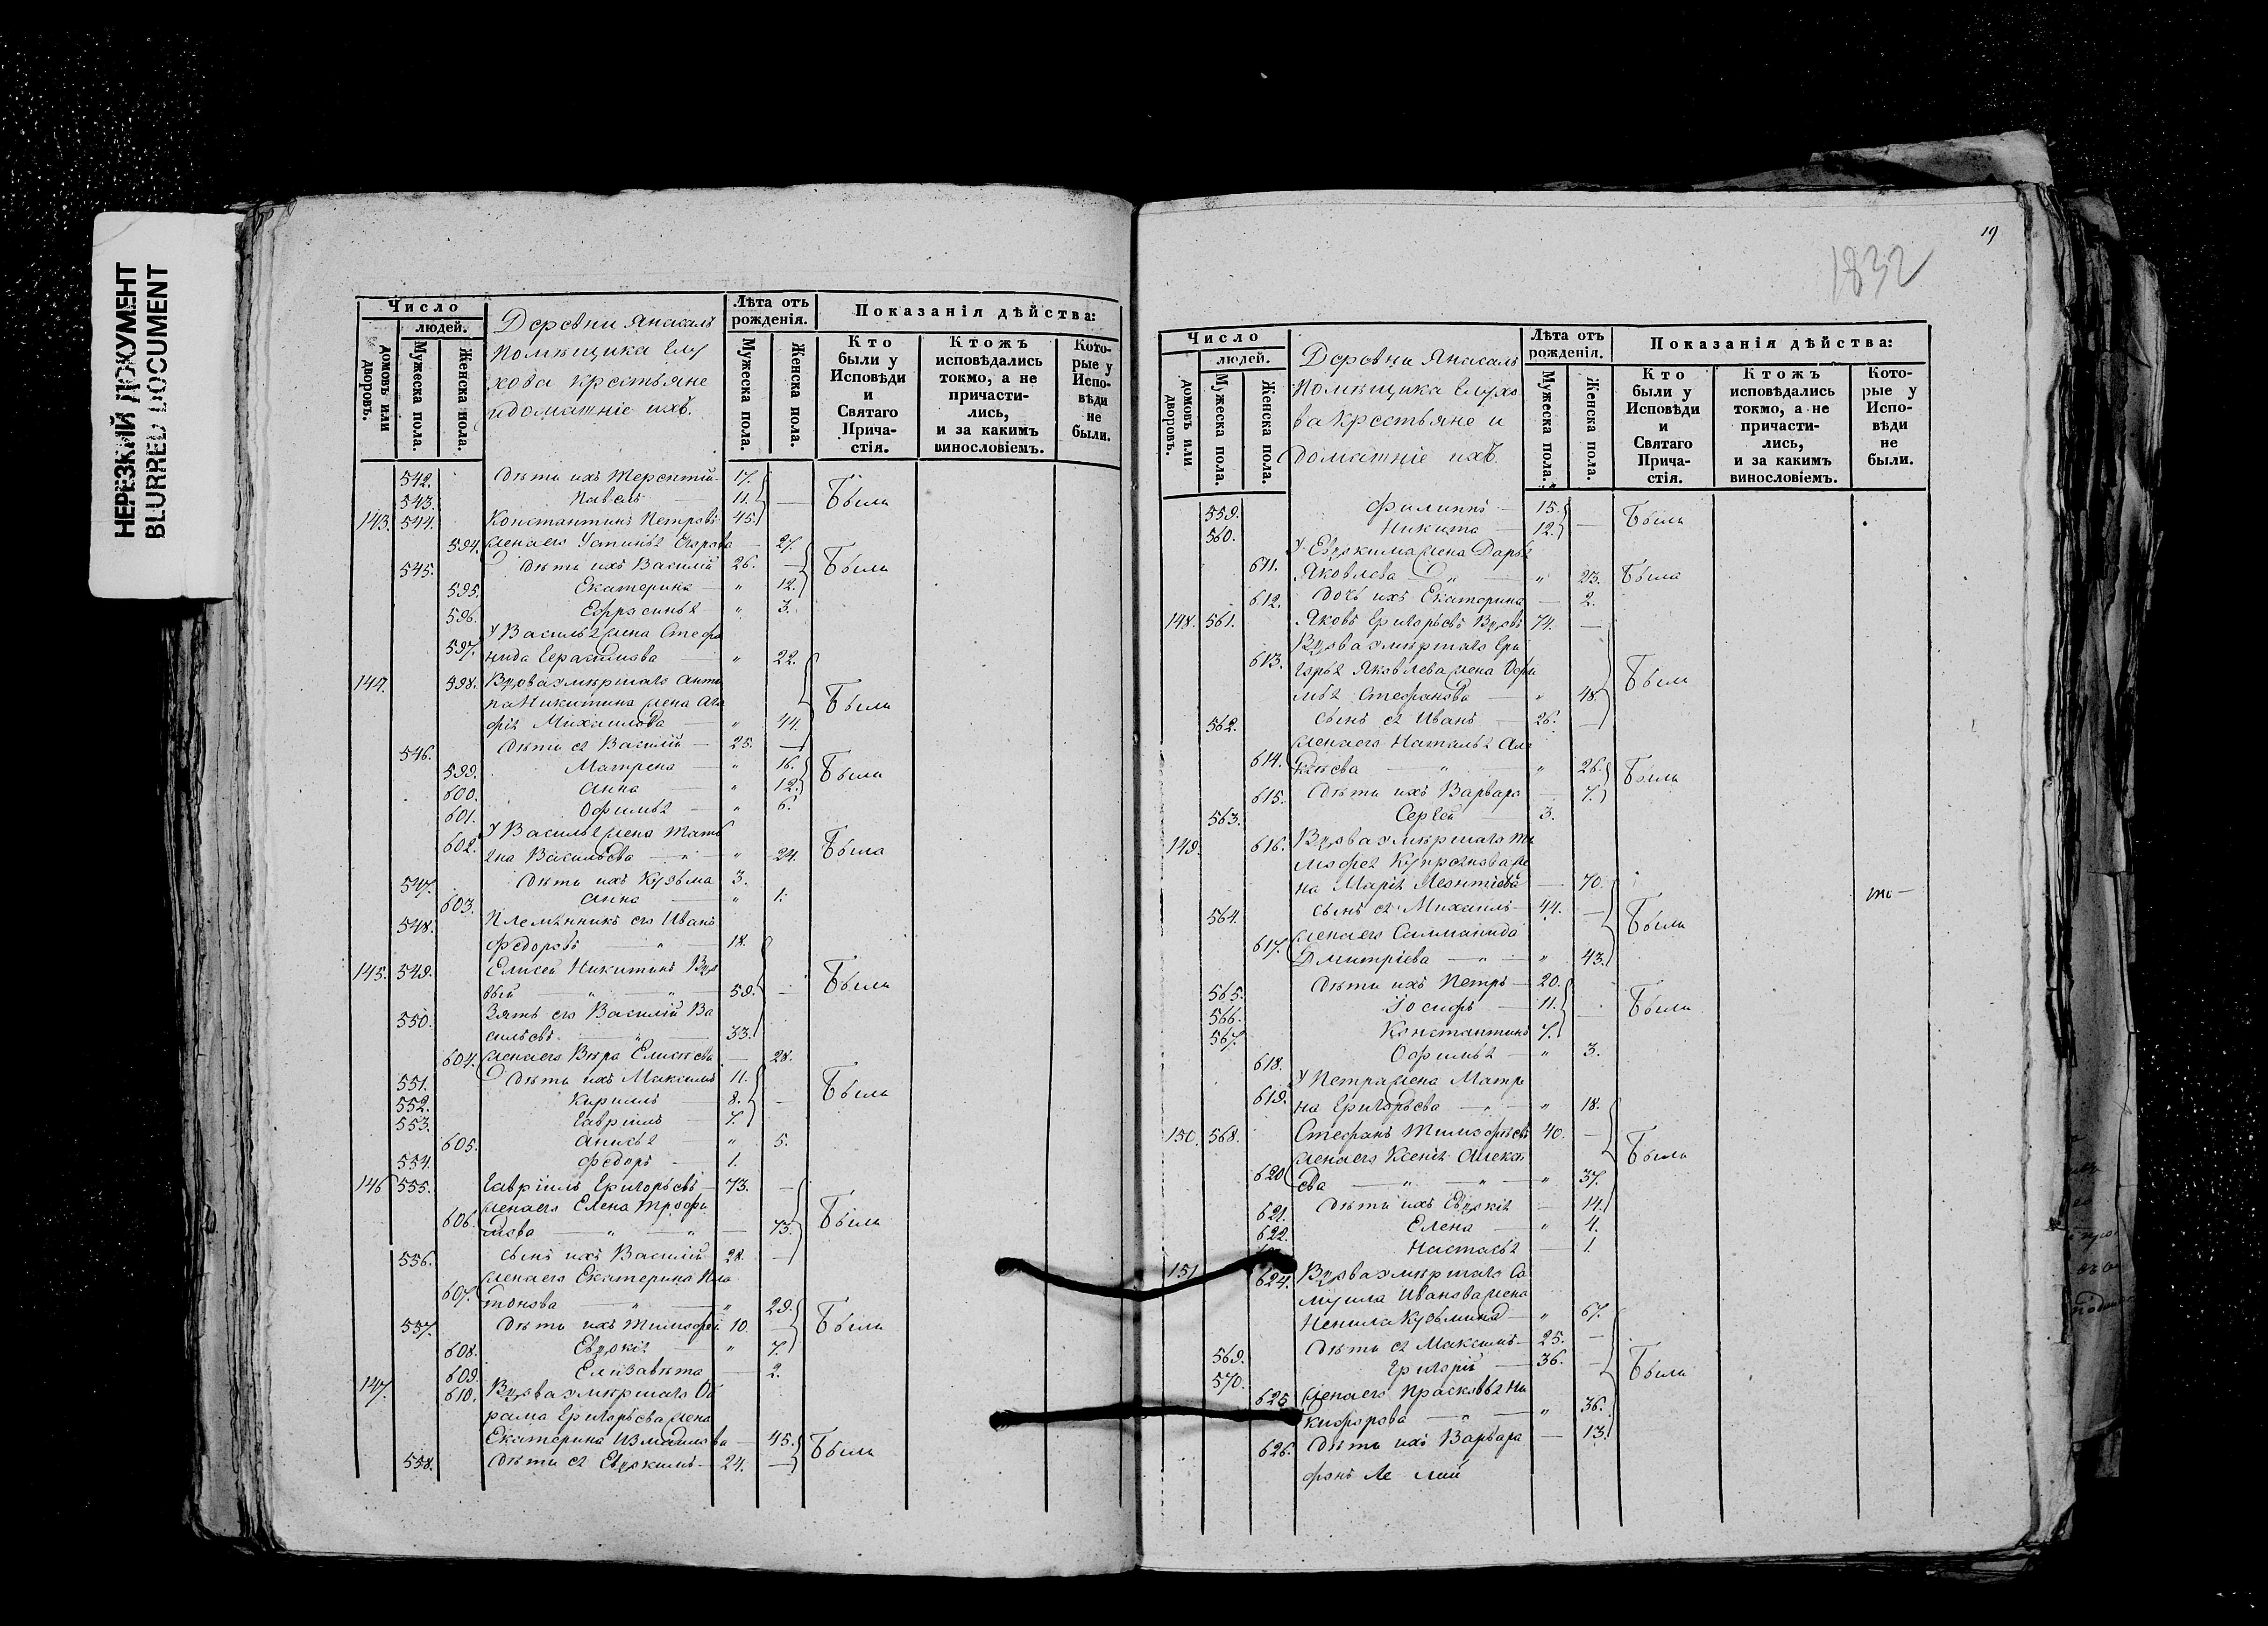 НЕРЕЗКИЙ ДОКУМЕНТ
BLURRED DOCUMENT
Число
людей.
домовъ или дворовъ.
Мужеска пола.
Женска пола.
Деревни Янасалъ
помѣщика Глу
хова крестьяне
и домашніе ихъ.
Лѣта отъ рожденія.
Мужеска пола.
Женска пола.
Показанія дѣйства:
Кто были у Исповѣди и Святаго Причастія.
Ктожъ исповѣдались токмо, а не причастились, и за какимъ винословіемъ.
Которые у Исповѣди не были.
542. Дѣти ихъ Терентій 17.
543. Павелъ 11. Были
143. 544. Константинъ Петровъ 45.
594. жена его Устинья Егорова 27.
545. Дѣти ихъ Василій 26. Были
595. Екатерина " 12.
596. Ефросинья " 3.
У Василья жена Стефа
597. нида Герасимова " 22.
144. 598. Вдова умершаго Анти
па Никитина жена Ага
фія Михаилова " 44. Были
546. Дѣти ея Василій 25.
599. Матрена " 16.
600. Анна 12. Были
601. Офимья " 6.
У Василья жена Тать
602. яна Васильева " " 24. Была
547. Дѣти ихъ Кузьма 3.
603. Анна " 1.
548. Племянникъ его Иванъ
Федоровъ " 18.
145. 549. Елисей Никитинъ Вдо
вый " " 59. Были
550. Зять его Василій Ва
сильевъ " 33.
604. жена его Вѣра Елисѣева 28.
551. Дѣти ихъ Максимъ 11.
552. Кириллъ 8. Были
553. Гавріилъ 7.
605. Анисья " 5.
554. Федоръ 1.
146 555. Гавріилъ Григорьевъ 73.
жена его Елена Трофи
606. мова " " 73. Были
556. Сынъ ихъ Василій 28.
жена его Екатерина Пла
607. тонова " " 29.
557. Дѣти ихъ Тимофей 10. Были
608. Евдокія " 7.
609. Елизавета 2.
147. 610. Вдова умершаго
Григорьева жена
Екатерина Измаилова 45. Были
558. Дѣти ея Евдокимъ 24.
19
1832
Число
людей.
домовъ или дворовъ.
Мужеска пола.
Женска пола.
Деревни Янасалъ
помѣщика Глухо
ва крестьяне и
домашніе ихъ.
Лѣта отъ рожденія.
Мужеска пола.
Женска пола.
Показанія дѣйства:
Кто были у Исповѣди и Святаго Причастія.
Ктожъ исповѣдались токмо, а не причастились, и за какимъ винословіемъ.
Которые у Исповѣди не были.
559. Филиппъ 15.
560. Никита 12. Были
У Евдокима жена Дарья
611. Яковлева " " 23. Была
612. Дочь ихъ Екатерина 2.
148. 561. Яковъ Григорьевъ Вдовъ 74.
Вдова умершаго Гри
613. горья Яковлева жена Офи
мья Стефанова " 48. Были
562. Сынъ ея Иванъ 26.
жена его Наталья Але
614. ксѣева " " 26. Были
615. Дѣти ихъ Варвара 7.
563. Сергей 3.
149. 616. Вдова умершаго Ти
мофея Купреянова же
на Марія Леонтіева 70.
564. Сынъ ея Михаилъ 44. Были
жена его Саламанида
617. Дмитріева " " 43.
565. Дѣти ихъ Петръ 20.
566. Іосифъ 11. Были
567. Константинъ 7.
618. Офимья " 3.
У Петра жена Матре
619. на Григорьева " " 18.
150. 568. Стефанъ Тимофѣевъ 40.
жена его Ксенія Алексѣ Были
620 ева " " " 37.
621. Дѣти ихъ Евдокія 14.
622. Елена " 4.
Настасья 1.
151 624. Вдова умершаго Са
муила Иванова жена
Ненила Кузьмина " 67.
569. Дѣти ея Максимъ 25.
570. Григорій 36. Были
625 жена его Прасковья Ни
кифорова " " 36.
626. Дѣти ихъ Варвара 13.